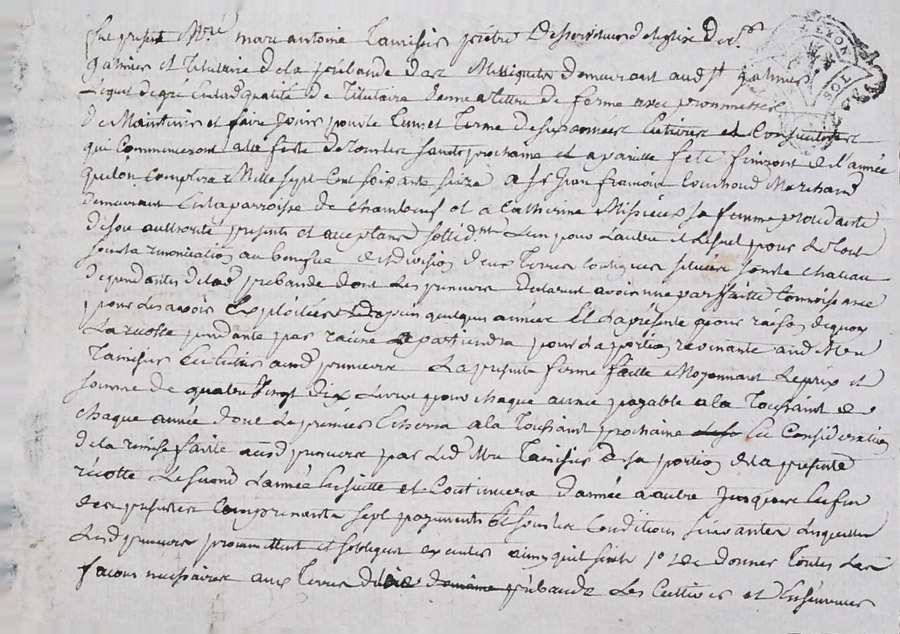 fut présent Mre marc antoine Tamisier prêtre Desserviteur d'eglise de St
galmier et Titulaire de la prébande des Missignets demeurant aud. st galmier
Lequel de gré en lad. qualité de Titulaire donne a Tittre de ferme avec promesse
de Maintenir et faire Jouir pour le Tems et Terme de six années Entieres et Consecutives
qui commenceront a la feste de Toussaint prochaine et a pareille fete finiront de l'année
que l'on comptera Mille sept Cent soixante seize a sr Jean francois Couchoud Marchand
demeurant En la parroisse de chambœuf et a Catherine sa femme procedante
de son authorité presents et acceptants sollidt. L'un pour L'autre et Lesuel pour Le tout
sous la renonciation au benefice de division deux Terres contigues scituées sous le chateau
dependantes de lad. prebande dont Les preneurs declarent avoir une parffaitte Connoissance
pour Les avoir Exploitées depuis quelques années Et la presente pour raison de quoy
La recolte pendante par racine apartiendra pour La portion revenante aud. Mre
Tamisier Ecclesi auxd. preneurs La presente ferme faitte Moyennant Le prix et
somme de quatre vingt dix Livres pour chaque année payable a la Toussaint de
chaque année dont Le premier Echerra a la Toussaint prochaine En Consideration
de la remise faitte auxd. preneurs par Led. Mre Tamisier de sa portion de la presente
recolte Le second L'année Ensuitte et Continuera d'année a autre Jusques En fin
des presentes Comprenante sept payements Et sous les Conditions suivantes Lesquelles
Lesd. preneurs promettent et s'obligent executer ainsy qu'il suit 1o De donner Toutes Les
facons necessaires aux Terres de lad. domaine prébande Les Cultiver et Ensemencer